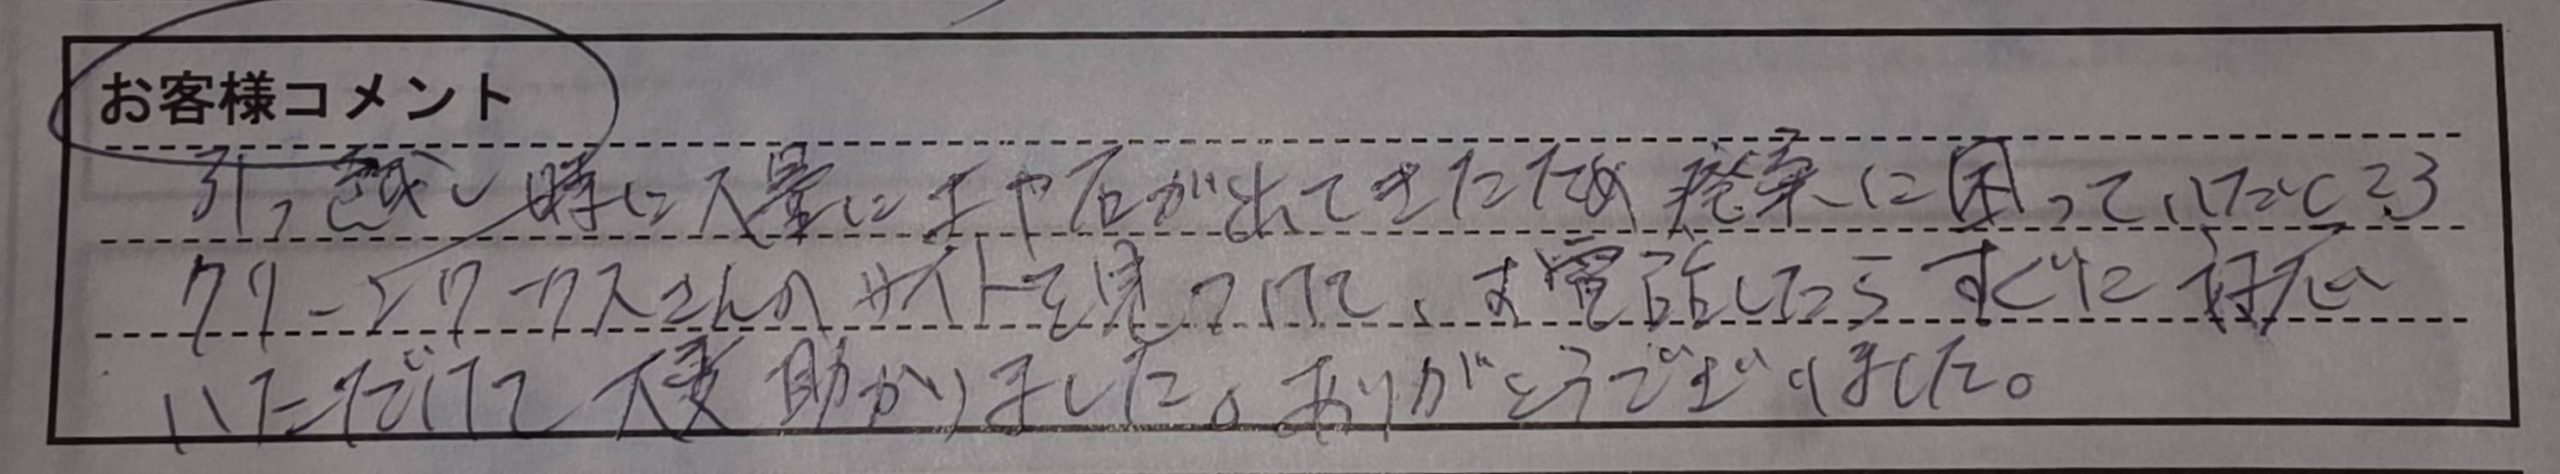 お客様コメント
引っ越し時に大量に土や石が出てきたため廃棄に困っていたところ
クリーンワークスさんのサイトを見つけて、お電話したらすぐに対応
いただけて大変助かりました。ありがとうございました。